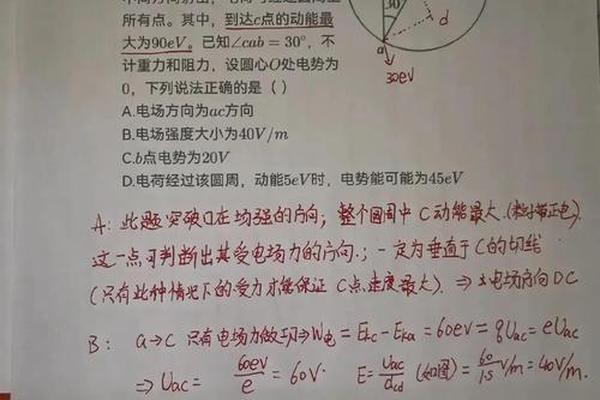 所有点。其中，到达c点的动能最
大为90eV。已知∠cab=30°，不
计重力和阻力，设圆心O处电势为
0，下列说法正确的是（ ）
30
d
a
30eV
A.电场方向为ac方向
B.电场强度大小为40V/m
C.b点电势为20V
D.电荷经过该圆周，动能5eV时，电势能可能为45eV
A: 此题突破口在场强的方向；整个圆周中C动能最大.(粒子带正电).
这一点可判断出其受电场力的方向.；一定为垂直于C的切线
(只有此种情况下的受力才能保证C点速度最大) ⇒ 电场方向OC
B: a→C 只有电场力做功⇒W电=Ekc-Eka=60eV=qUac=eUac
⇒Uac=60eV/e=60V. E=Uac/dcd (如图)=60/1.5V/m=40V/m.